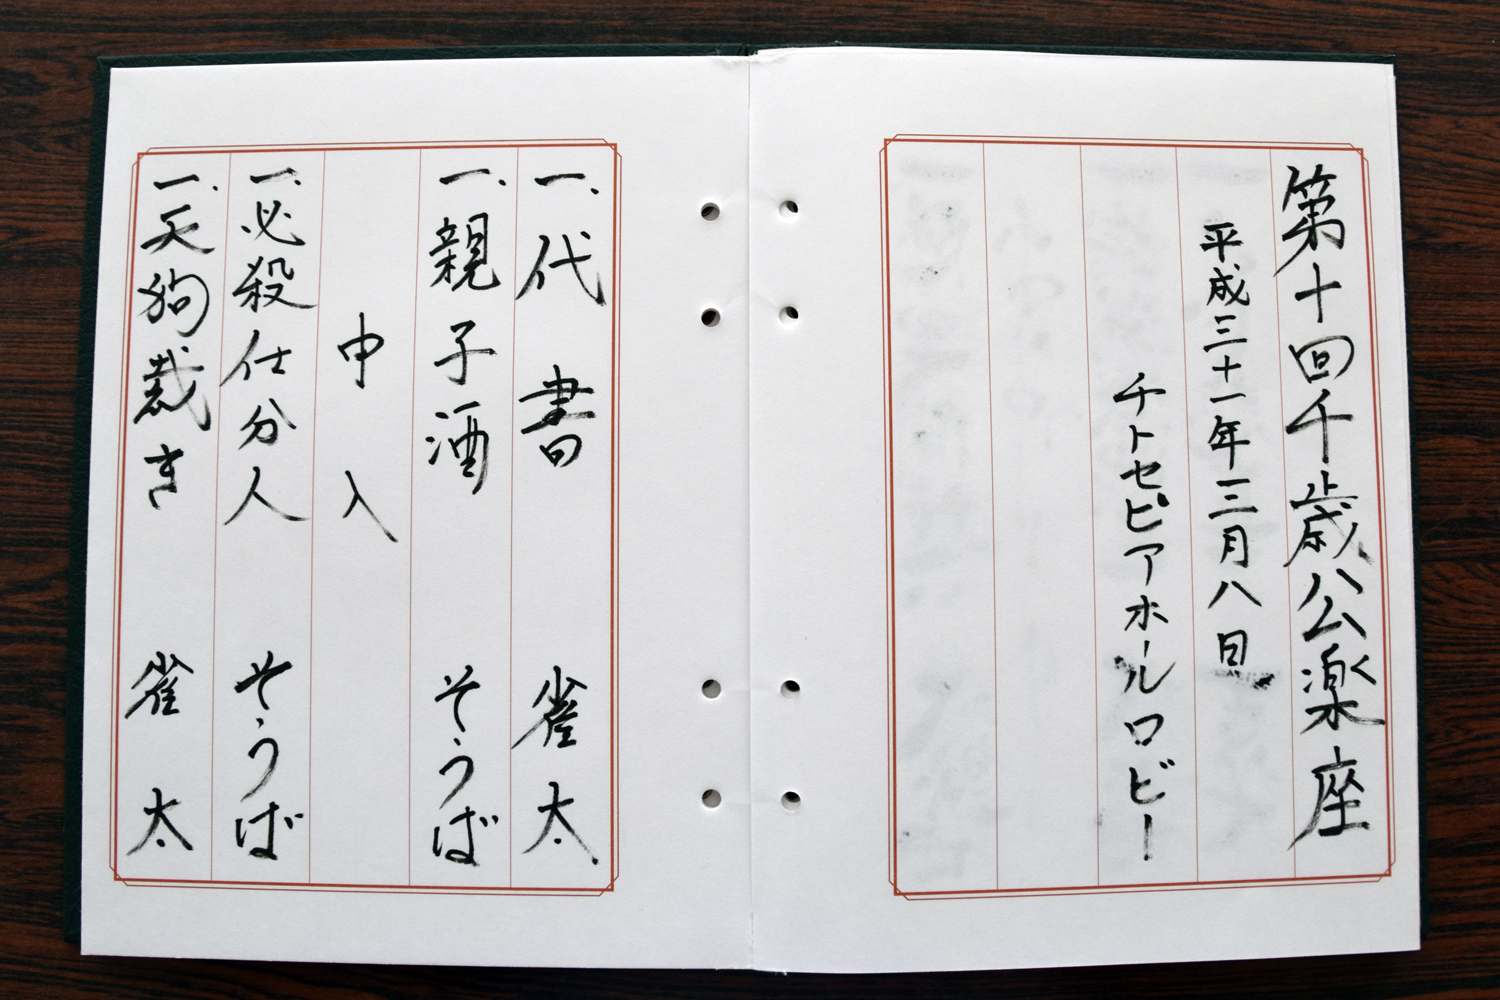 第十回千歳公楽座
平成三十一年三月八日
チトセピアホールロビー
一、代書 雀太
一、親子酒 そうば
中入
一、必殺仕分人 そうば
一、天狗裁き 雀太